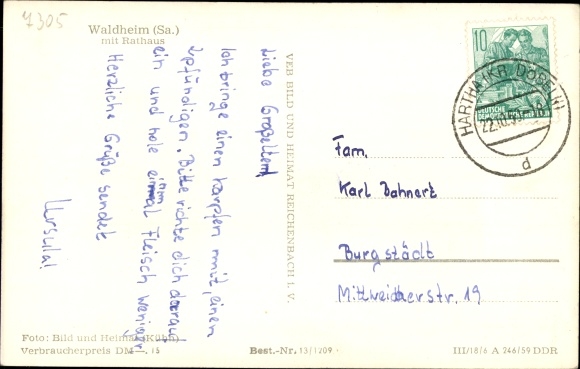 7305
Waldheim (Sa.)
mit Rathaus
Liebe Großeltern
Ich bringe einen Karpfen mit, einen
4pfündigen. Bitte richte dich darauf
ein und hole einmal Fleisch weniger
Herzliche Grüße sendet
Ursula!
VEB BILD UND HEIMAT REICHENBACH I. V.
10
DEUTSCHE
DEMOKRATISCHE REPUBLIK
HARTHA (KR DÖBELN)
d
Fam.
Karl Bahnert
Burgstädt
Mittweidaerstr. 19
Foto: Bild und Heimat (Kühn)
Verbraucherpreis DM —, 15
Best.-Nr. 13/1209
III/18/6 A 246/59 DDR